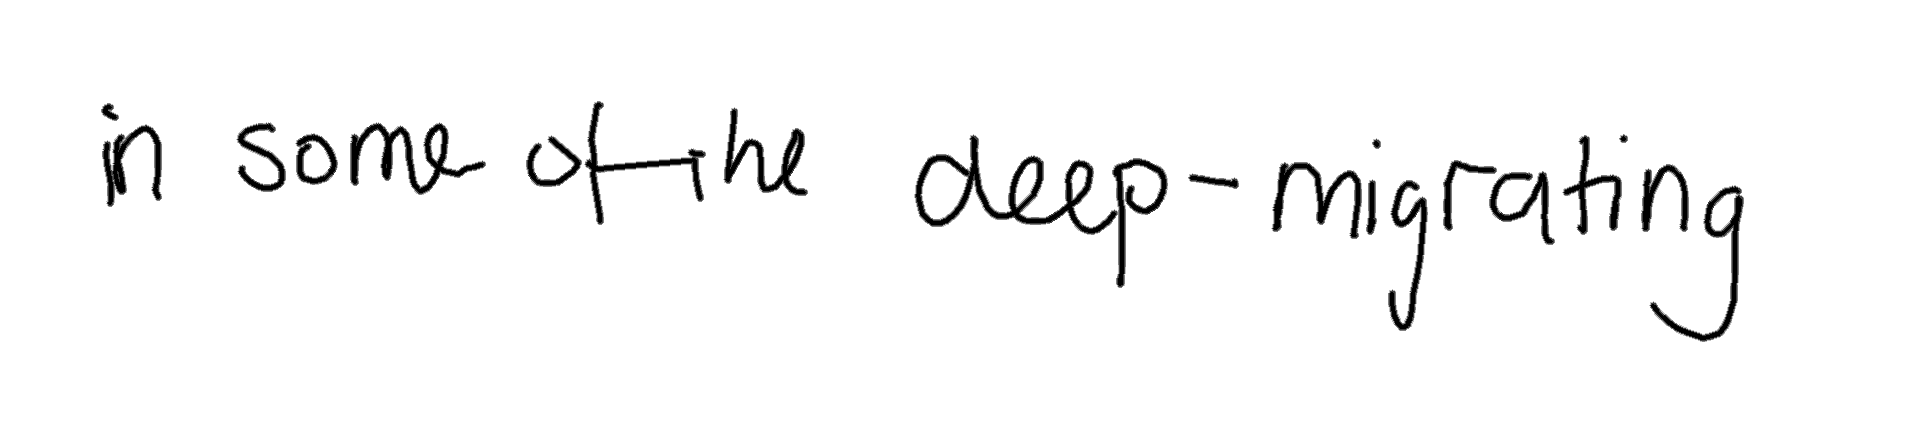 in some of the deep-migrating